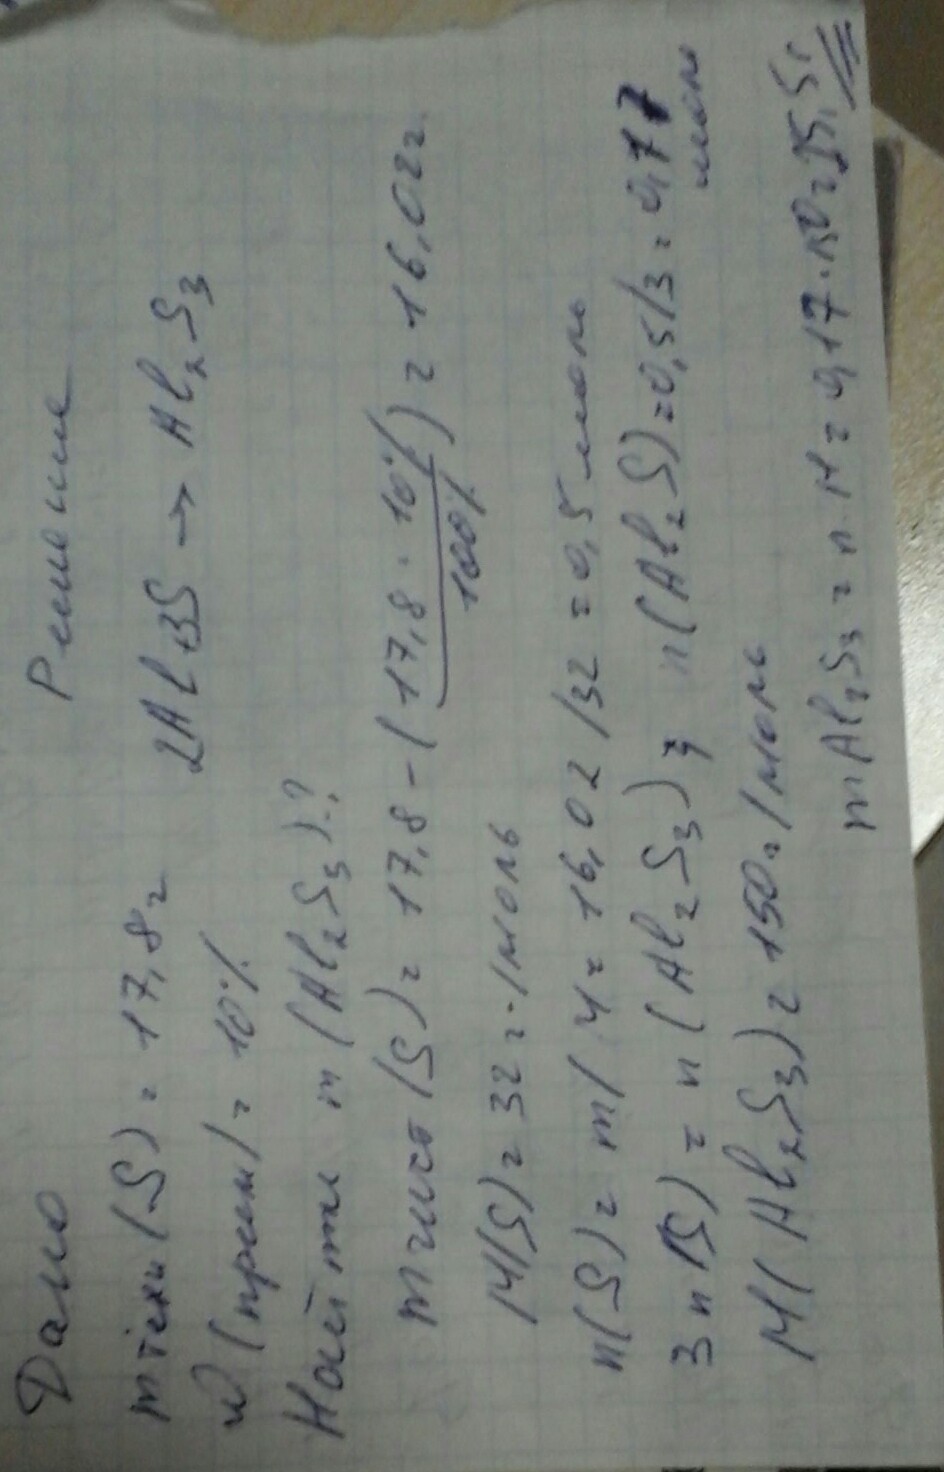 Дано Решение
m техн (S) = 17,8 г 2Al+3S → Al₂S₃
ω (прим) = 10%
Найти m (Al₂S₃)?
m чист (S) = 17,8 - (17,8 · 10% / 100%) = 16,02 г.
M(S) = 32 г/моль
n(S) = m/M = 16,02/32 = 0,5 моль
3 n(S) = n (Al₂S₃) n(Al₂S) = 0,5/3 = 0,17 моль
M(Al₂S₃) = 150 г/моль
m Al₂S₃ = n·M = 0,17·150 = 25,5 г